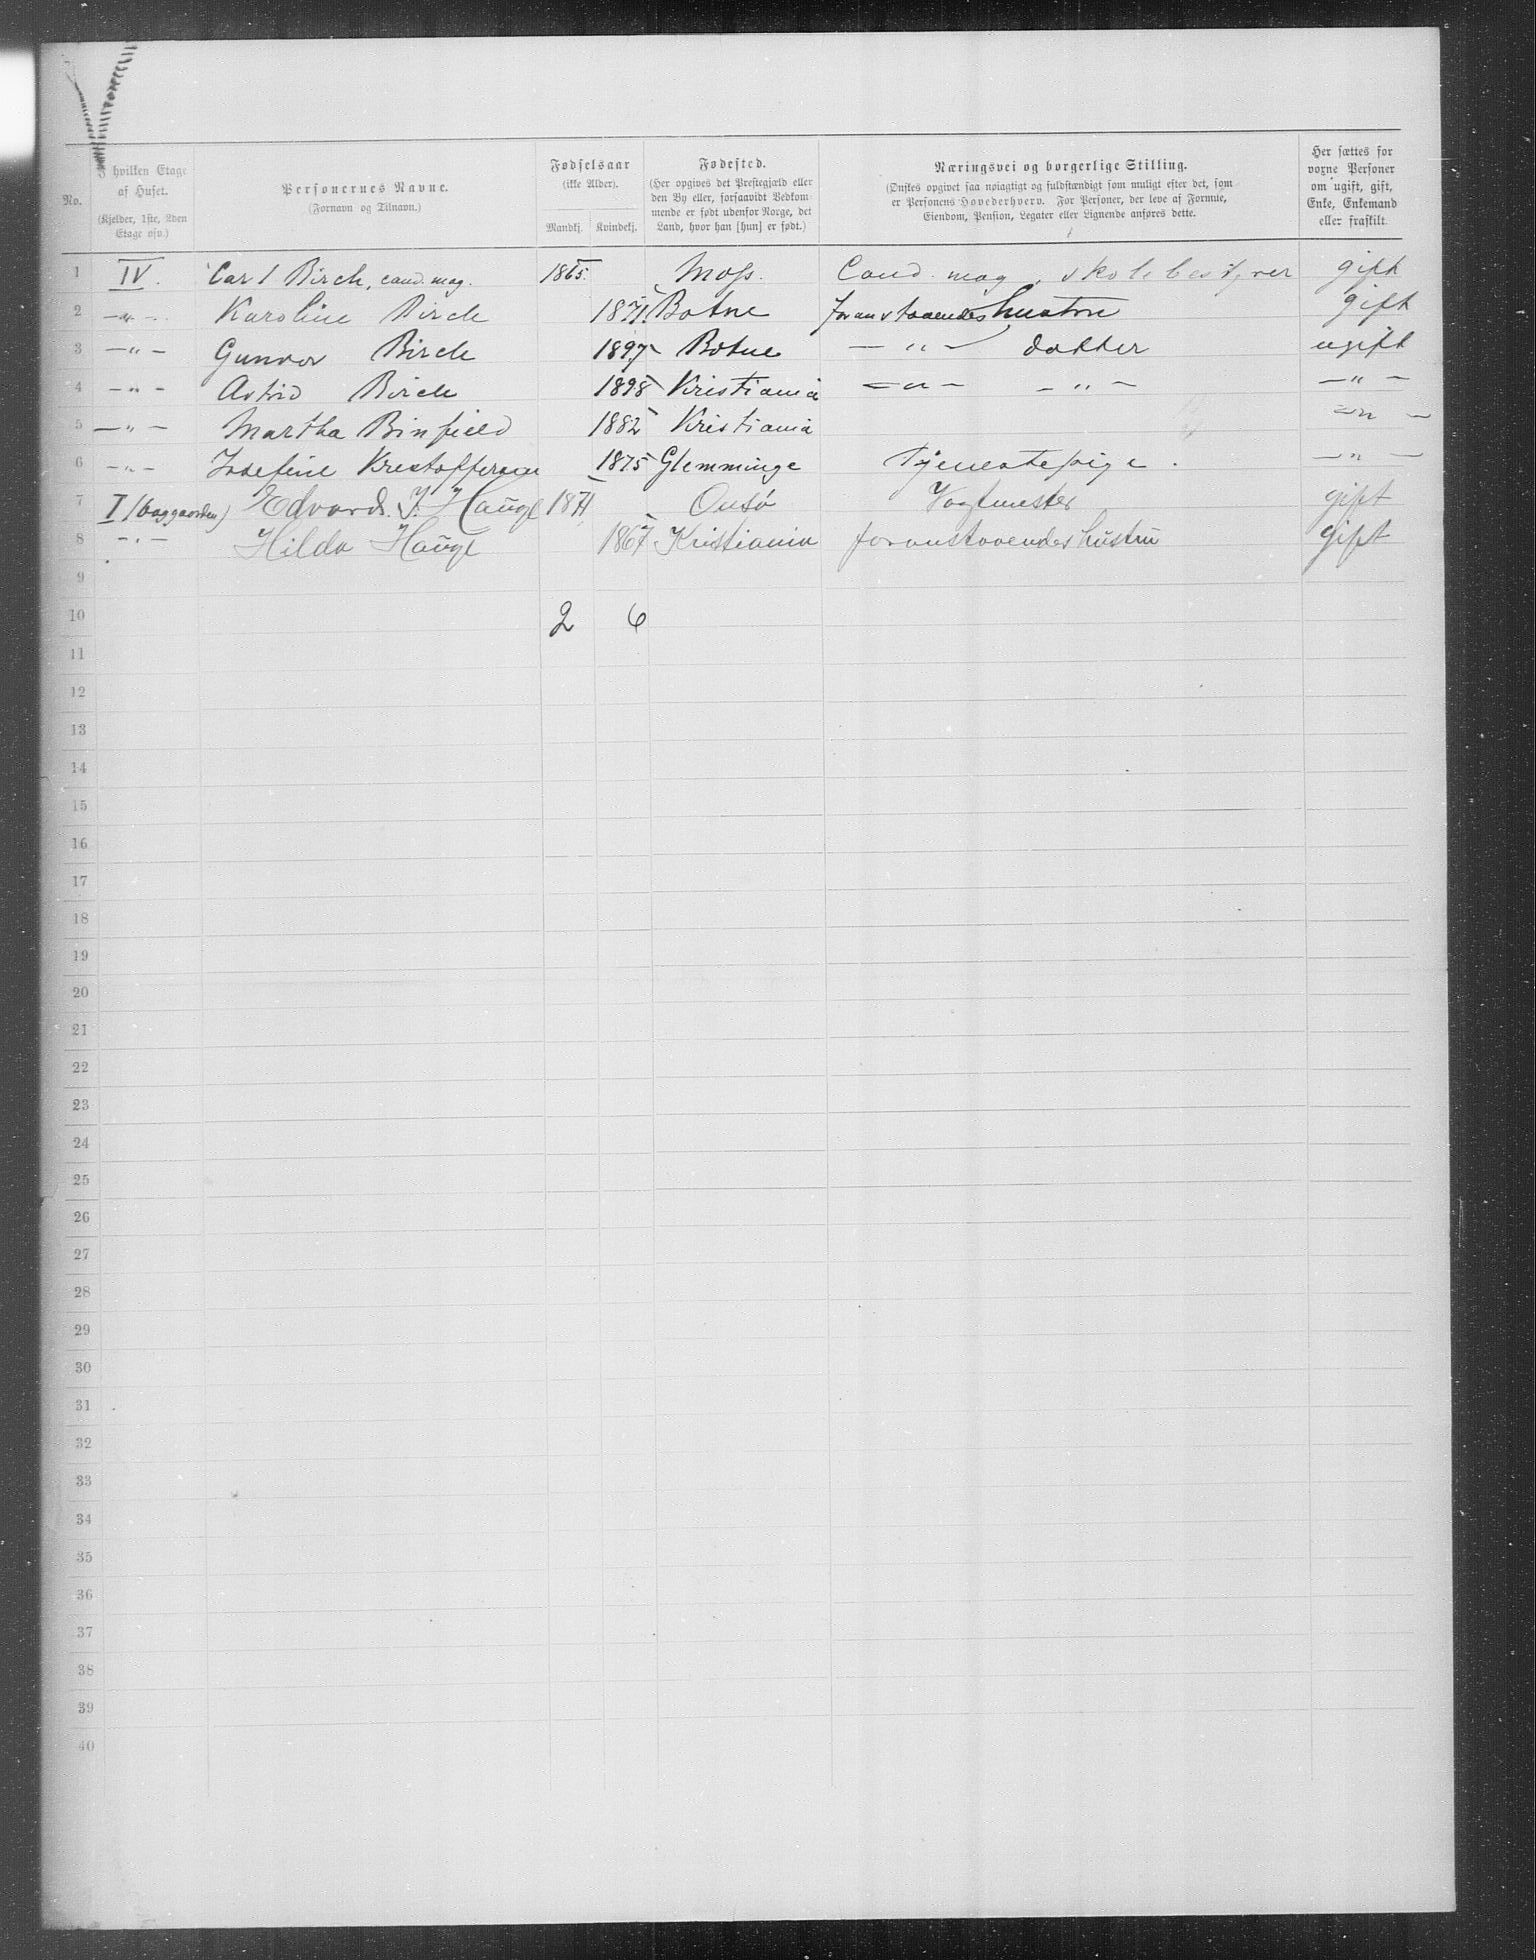 No.
I hvilken Etage af Huset.
(Kjelder, 1ste, 2den Etage osv.)
Personernes Navne.
(Fornavn og Tilnavn.)
Fødselsaar
(ikke Alder).
Mandkj. Kvindekj.
Fødested.
(Her opgives det Prestegjæld eller
den By eller, forsaavidt Vedkom-
mende er født udenfor Norge, det
Land, hvor han [hun] er født.)
Næringsvei og borgerlige Stilling.
(Ønskes opgivet saa nøiagtigt og fuldstændigt som muligt efter det, som
er Personens Hovederhverv. For Personer, der leve af Formue,
Eiendom, Pension, Legater eller Lignende anføres dette.
Her sættes for
voxne Personer
om ugift, gift,
Enke, Enkemand
eller fraskilt.
1 IV. Carl Birch, cand. mag. 1865. Moss. Cand. mag., skolebestyrer gift
2 —„— Karoline Birch 1871. Botne foranstaaendes hustru gift
3 —„— Gunvor Birch 1897 Botne —„— datter ugift
4 —„— Astrid Birch 1898 Kristiania —„— —„— —„—
5 —„— Martha Binfield 1882 Kristiania —„—
6 —„— Josefine Kristoffersen 1875 Glemminge Tjenestepige. —„—
7 I (baggaarden) Edvard J. Haugl 1871 Onsø Vagtmester gift
8 —„— Hilda Haugl 1867 Kristiania foranstaaendes hustru gift
9
10 2 6
11
12
13
14
15
16
17
18
19
20
21
22
23
24
25
26
27
28
29
30
31
32
33
34
35
36
37
38
39
40